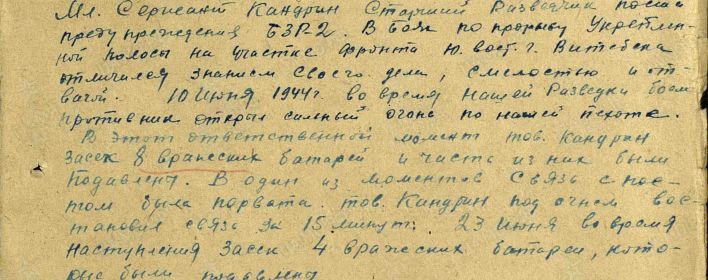 Мл. Сержант Кандрин Старший Разведчик поста
предупреждения БЗР-2. В боях по прорыву Укреплен-
ной полосы на участке фронта ю. вост. г. Витебска
отличился знанием своего дела, смелостью и от-
вагой. 10 Июня 1944г. во время нашей Разведки боем
противник открыл сильный огонь по нашей пехоте.
В этот ответственной момент тов. Кандрин
Засек 8 вражеских батарей и часть из них были
Подавлены. В один из моментов Связь с пос-
том была порвата. тов. Кандрин под огнем вос-
тановил связь за 15 минут. 23 Июня во время
наступления Засек 4 вражеских батареи, кото-
рые были подавлены